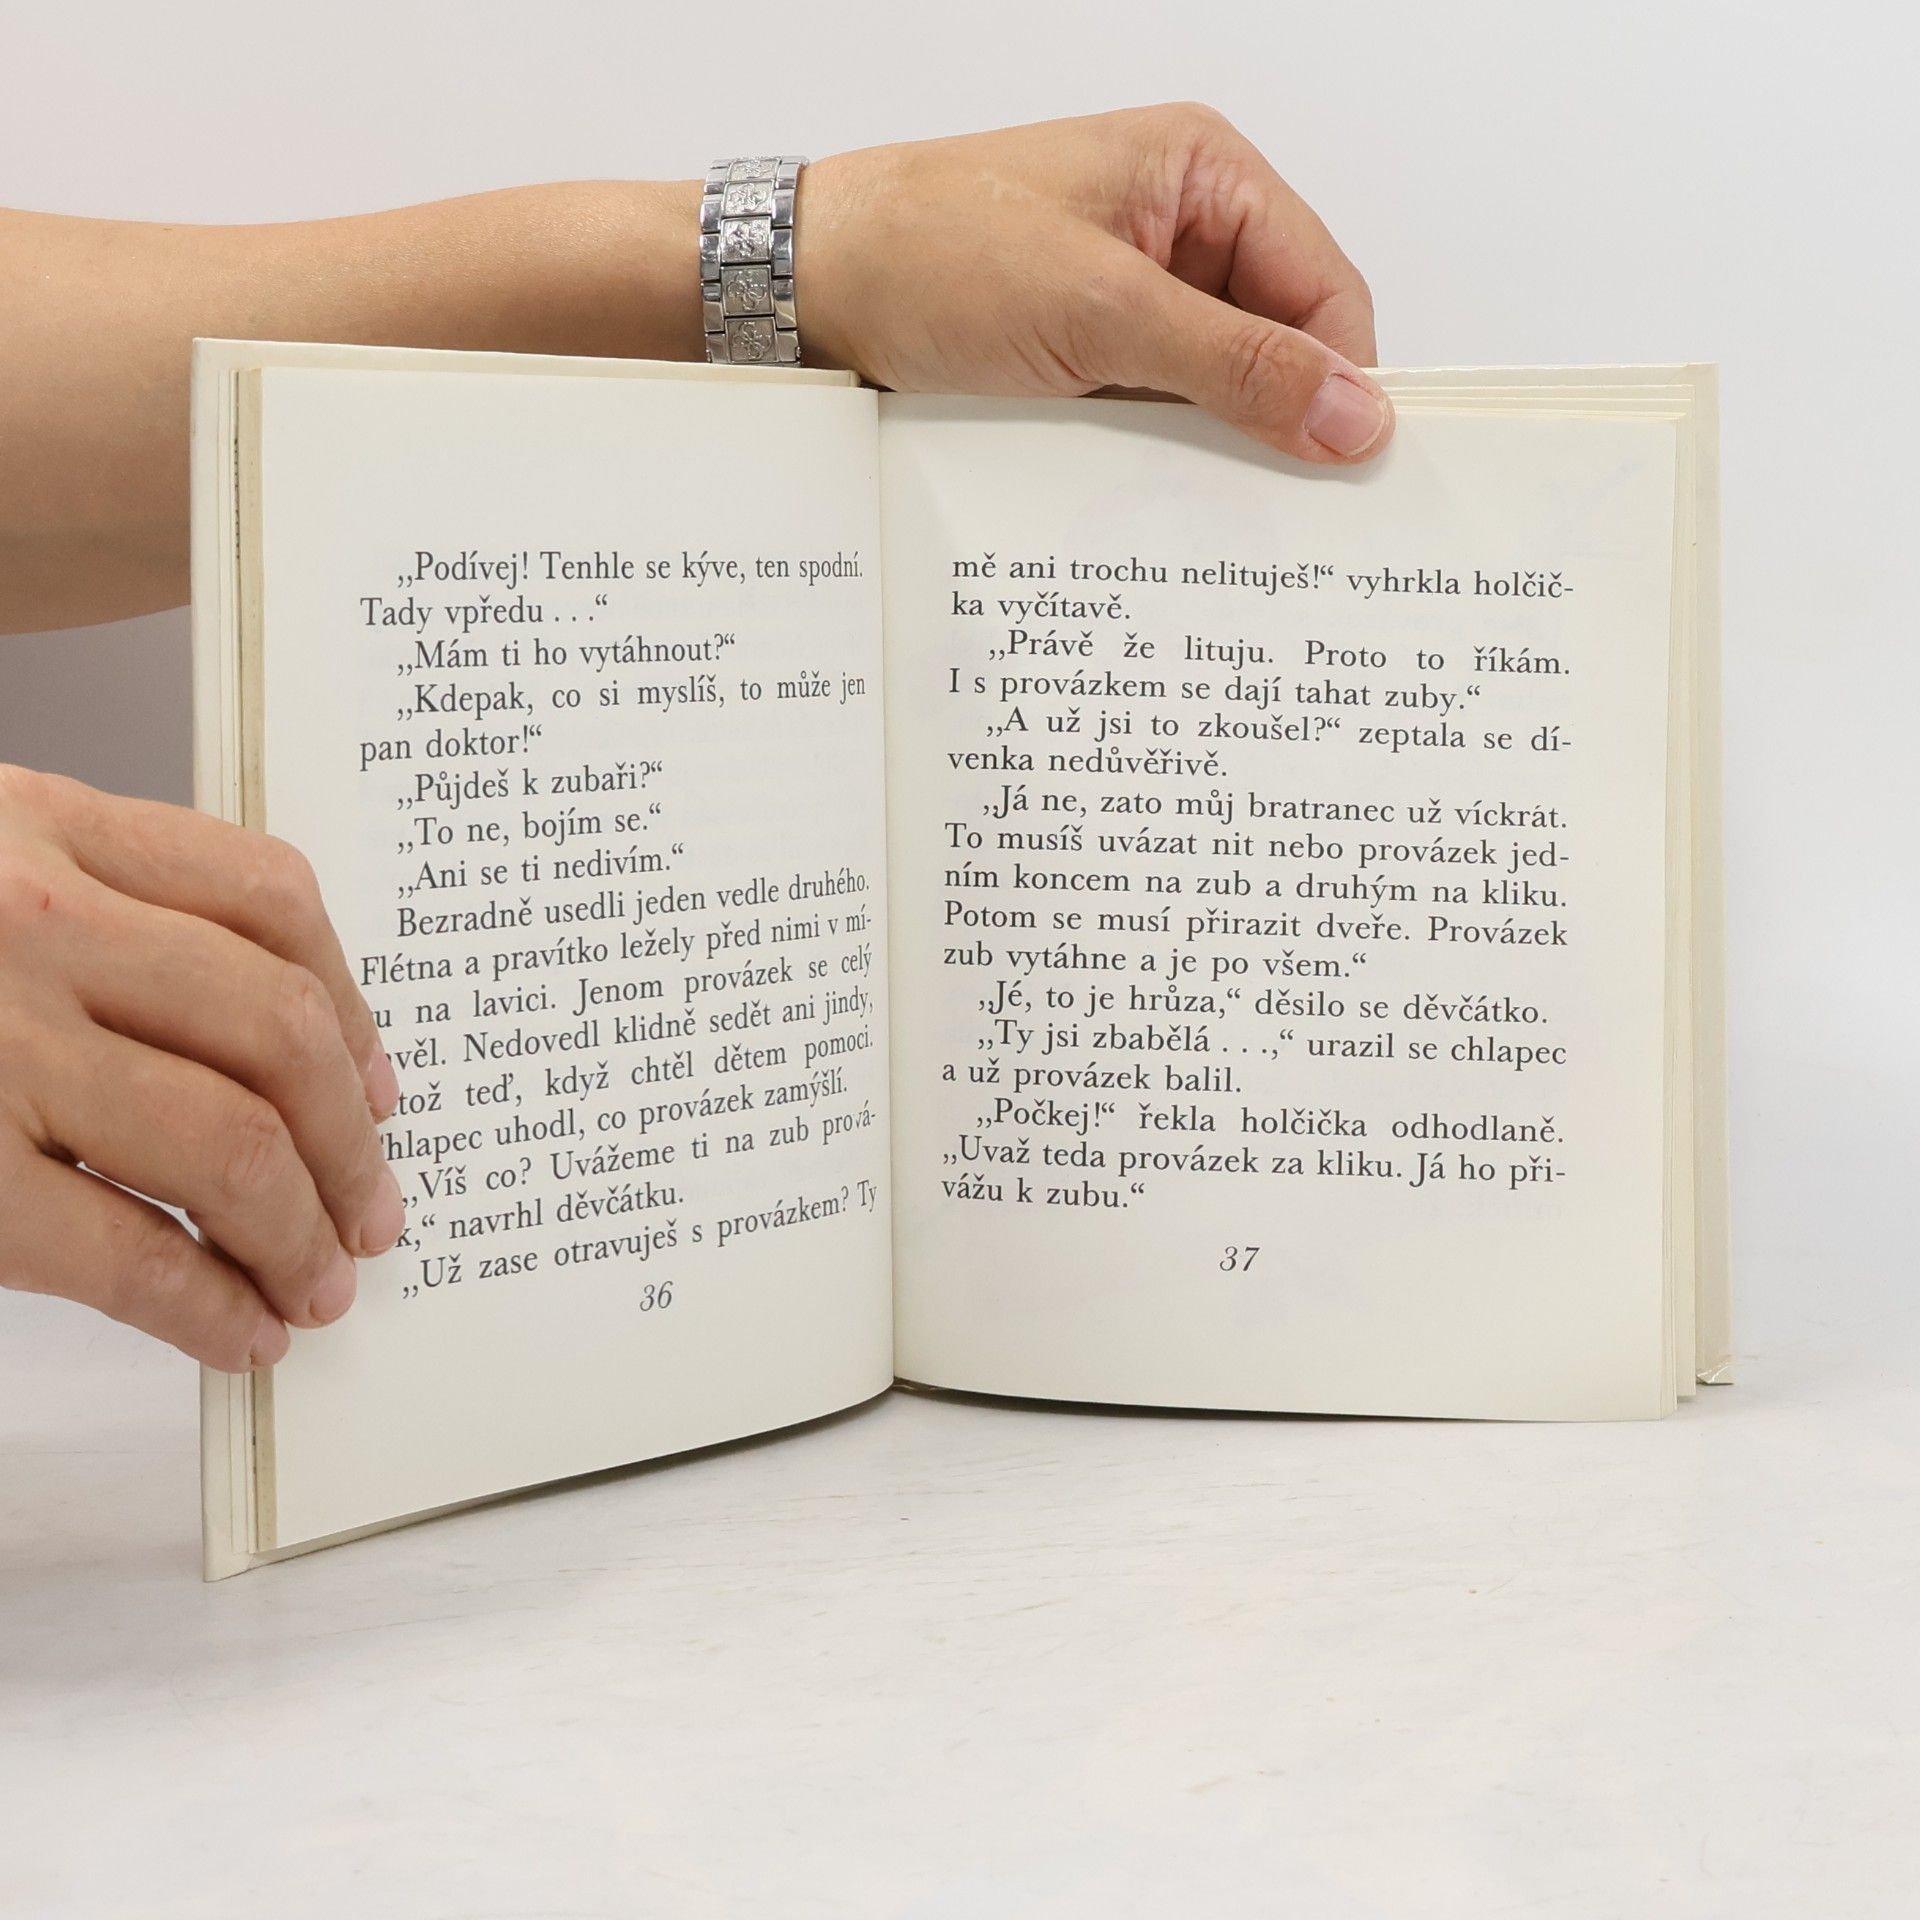 ,,Podívej! Tenhle se kýve, ten spodní.
Tady vpředu . . .“
,,Mám ti ho vytáhnout?“
,,Kdepak, co si myslíš, to může jen
pan doktor!“
,,Půjdeš k zubaři?“
,,To ne, bojím se.“
,,Ani se ti nedivím.“
Bezradně usedli jeden vedle druhého.
Flétna a pravítko ležely před nimi v mí-
u na lavici. Jenom provázek se celý
věl. Nedovedl klidně sedět ani jindy,
tož teď, když chtěl dětem pomoci.
hlapec uhodl, co provázek zamýšlí.
,,Víš co? Uvážeme ti na zub prová-
k,“ navrhl děvčátku.
,,Už zase otravuješ s provázkem? Ty
36
mě ani trochu nelituješ!“ vyhrkla holčič-
ka vyčítavě.
,,Právě že lituju. Proto to říkám.
I s provázkem se dají tahat zuby.“
,,A už jsi to zkoušel?“ zeptala se dí-
venka nedůvěřivě.
,,Já ne, zato můj bratranec už víckrát.
To musíš uvázat nit nebo provázek jed-
ním koncem na zub a druhým na kliku.
Potom se musí přirazit dveře. Provázek
zub vytáhne a je po všem.“
,,Jé, to je hrůza,“ děsilo se děvčátko.
,,Ty jsi zbabělá . . .,“ urazil se chlapec
a už provázek balil.
,,Počkej!“ řekla holčička odhodlaně.
,,Uvaž teda provázek za kliku. Já ho při-
vážu k zubu.“
37